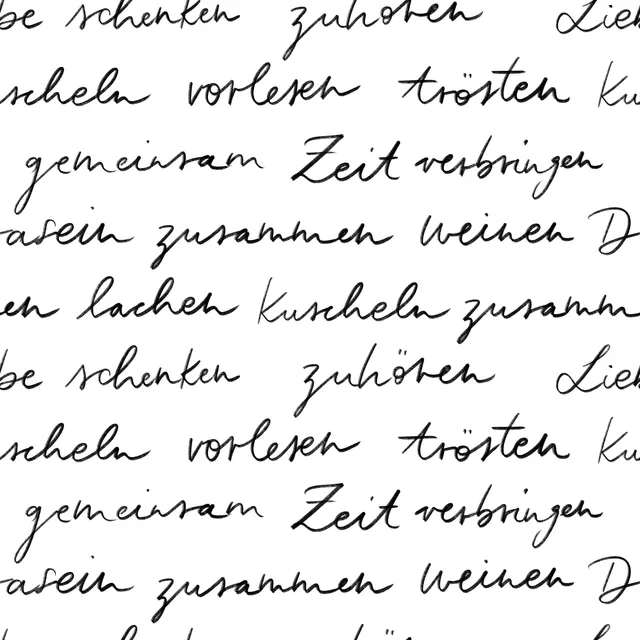 be schenken zuhören Lieb
scheln vorlesen trösten Ku
gemeinsam Zeit verbringen
asein zusammen weinen D
en lachen Kuscheln zusamm
be schenken zuhören Lieb
scheln vorlesen trösten Ku
gemeinsam Zeit verbringen
asein zusammen weinen D